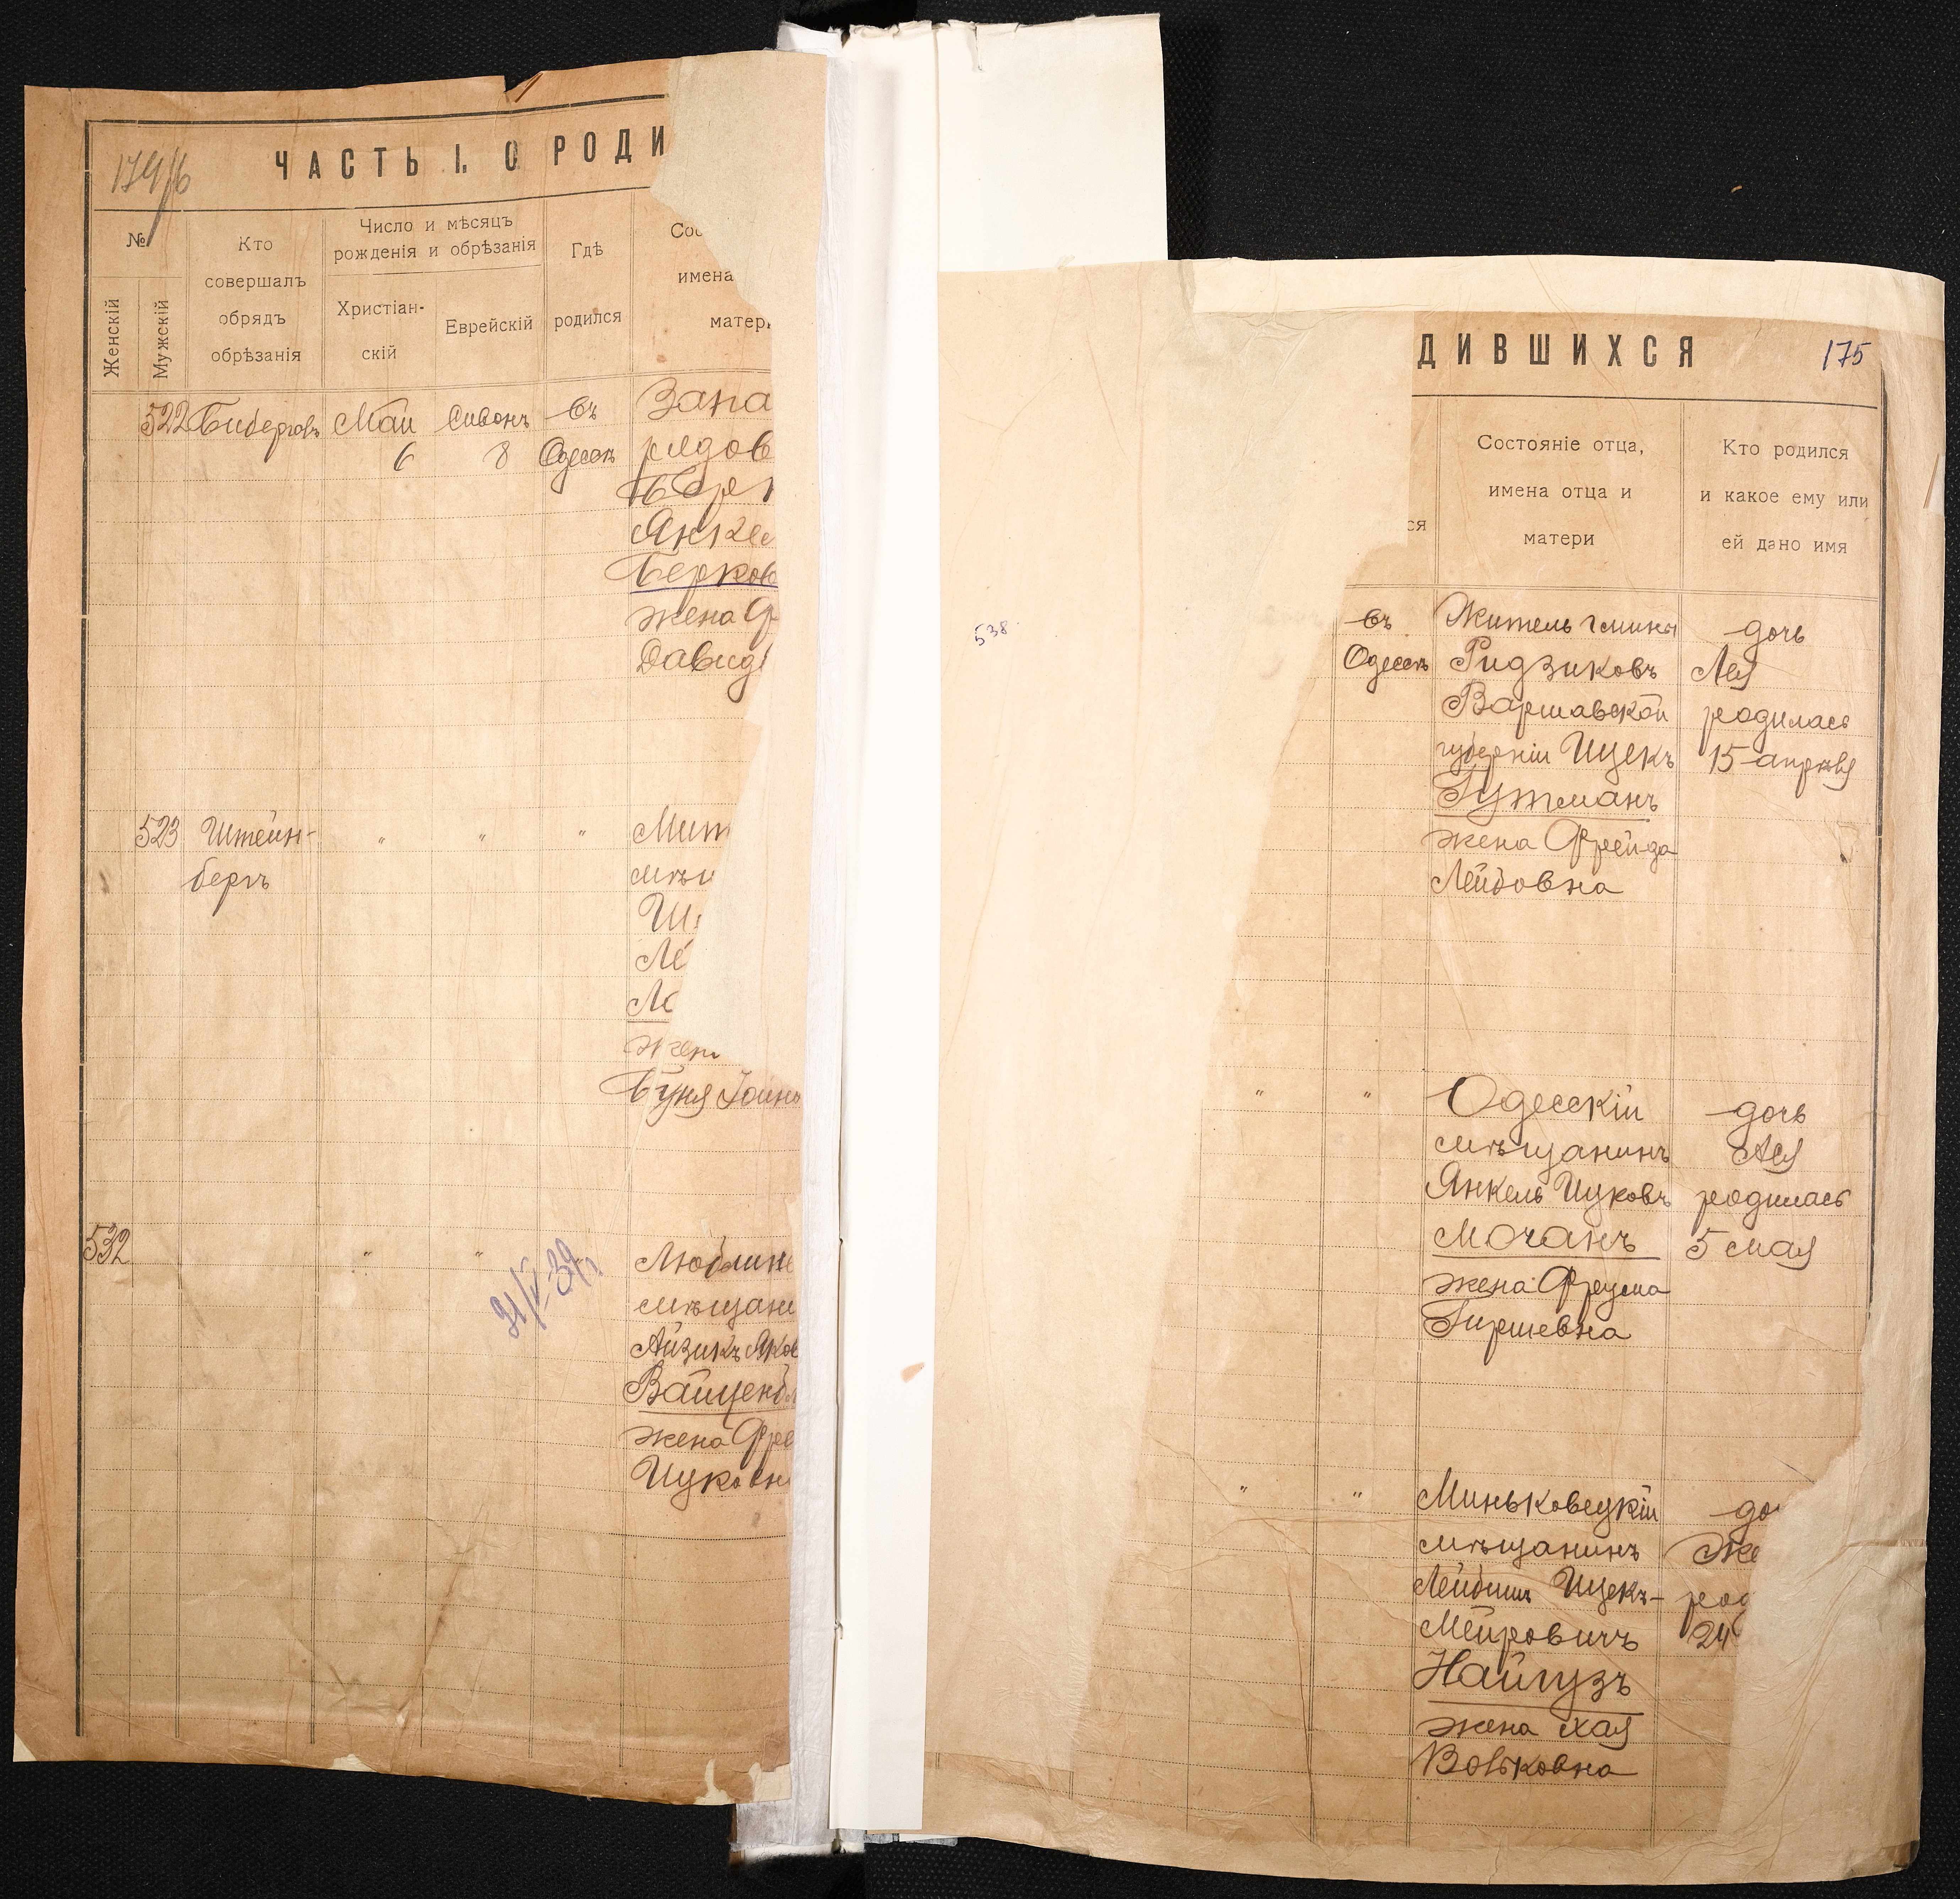 ЧАСТЬ I. О РОДИ
179/6
№
Женскій
Мужскій
Кто
совершалъ
обрядъ
обрѣзанія
Число и мѣсяцъ
рожденія и обрѣзанія
Христіан-
скій
Еврейскій
Гдѣ
родился
Сос
имена
матери
522
Май
6
Сивонъ
8
въ
Одессѣ
Запа
рядов
Янке
Берков
жена
Давид
523
Штейн-
бергъ
"
"
"
Мит
мѣ
Ш
Ле
М
жен
Буня
532
"
"
Люблин
мѣщан
Айзикъ Яков
Вайценб
жена Фре
Ицковн
ДИВШИХСЯ
175
ся
Состояніе отца,
имена отца и
матери
Кто родился
и какое ему или
ей дано имя
538
въ
Одессѣ
Житель гмины
Ридзиковъ
Варшавской
губерніи Ицекъ
Гутманъ
жена Фрейда
Лейбовна
дочь
Лея
родилась
15 апрѣля
"
"
Одесскій
мѣщанинъ
Янкель Ицковъ
Мочанъ
жена Фрума
Гиршевна
дочь
родилась
5 мая
"
"
Миньковецкій
мѣщанинъ
Лейбишъ Ицекъ-
Мейровичъ
Найгузъ
жена Хая
Вольковна
до
род
24